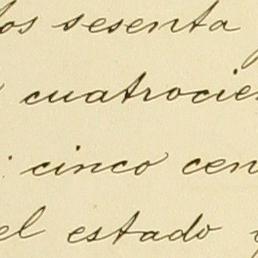 los sesenta
cuatrocien
cinco cen
el estado